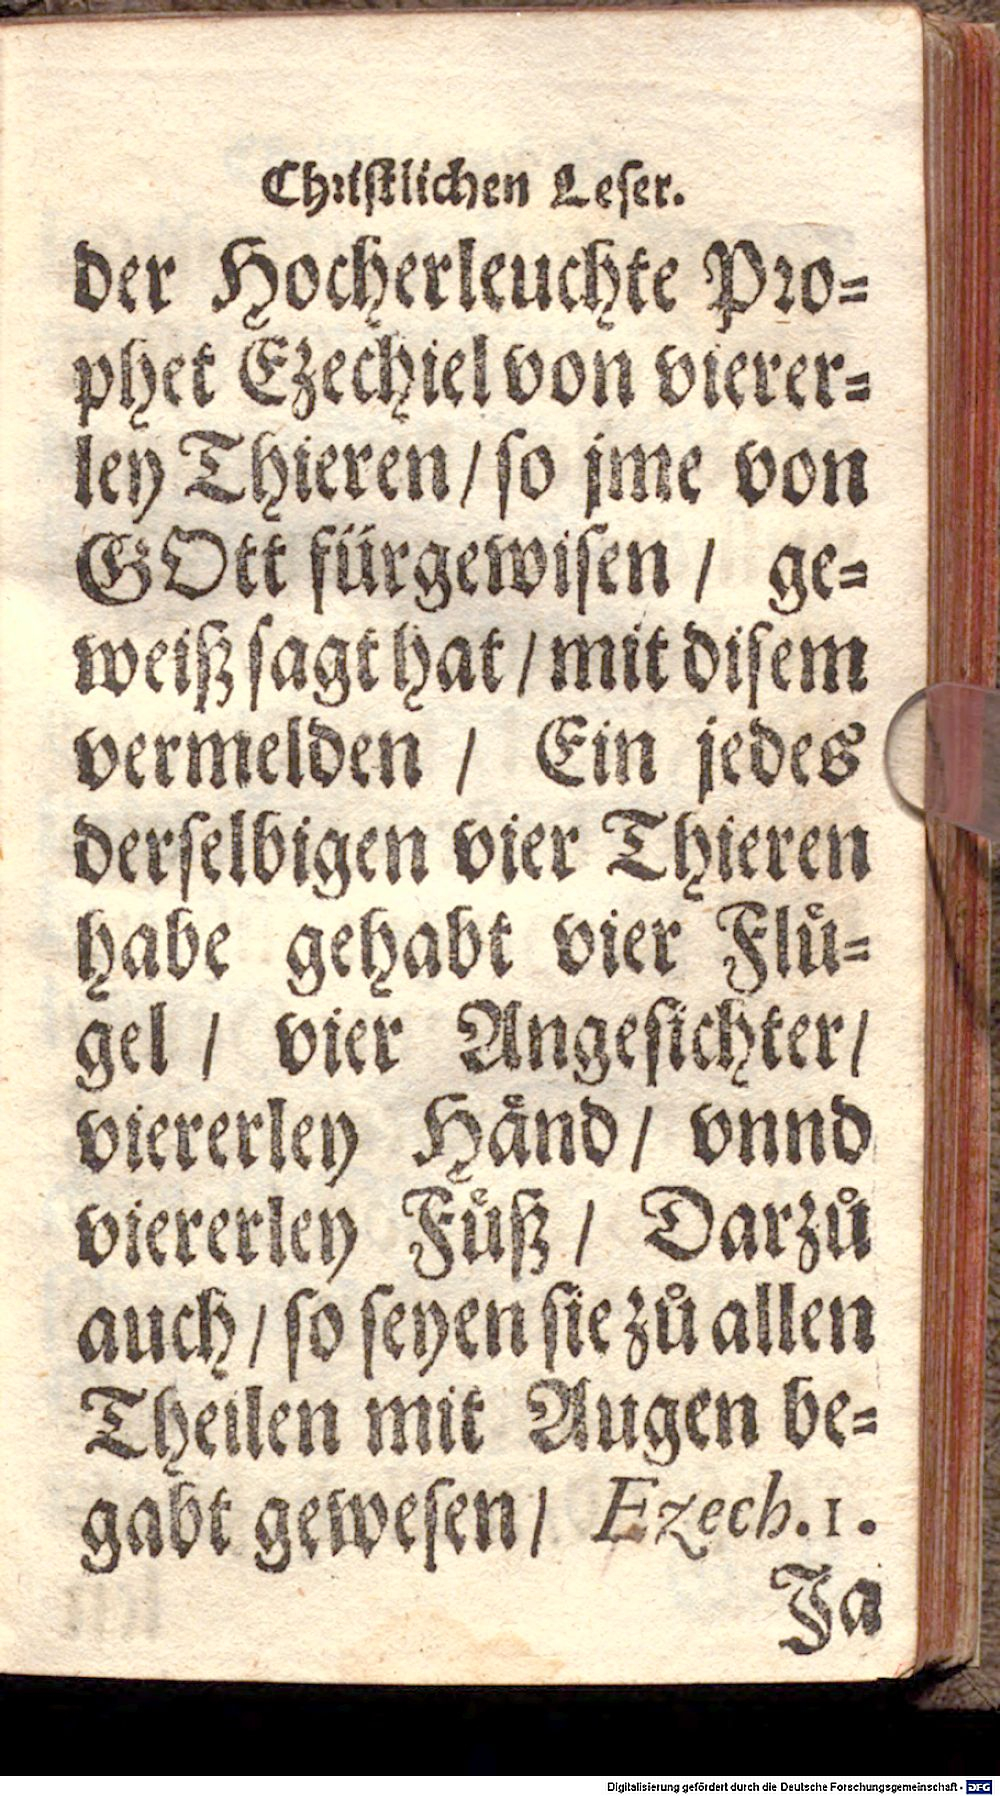 Christlichen Leser.
der Hocherleuchte Pro-
phet Ezechiel von vierer-
ley Thieren / so jme von
GOtt fürgewisen / ge-
weißsagt hat / mit disem
vermelden / Ein jedes
derselbigen vier Thieren
habe gehabt vier Fluͤ-
gel / vier Angesichter /
viererley Haͤnd / vnnd
viererley Fuͤß / Darzů
auch / so seyen sie zů allen
Theilen mit Augen be-
gabt gewesen / Ezech. 1.
Ja
Digitalisierung gefördert durch die Deutsche Forschungsgemeinschaft - DFG